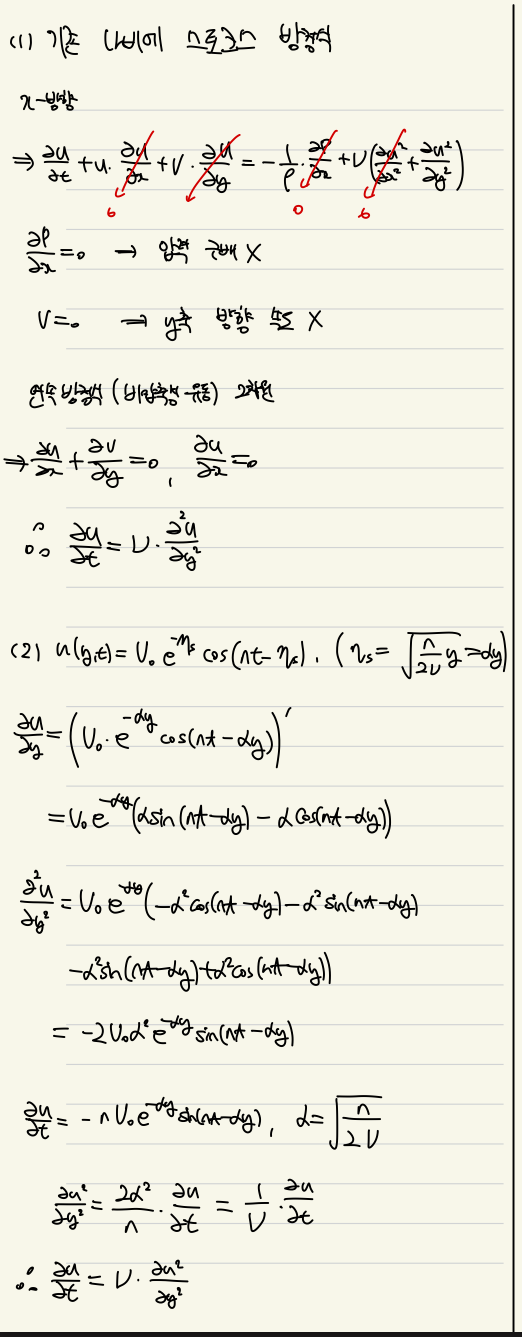 (1) 기존 나비에 스토크스 방정식
x-방향
⇒ ∂u/∂t + u · ∂u/∂x + V · ∂u/∂y = - 1/ρ · ∂P/∂x + ν(∂u²/∂x² + ∂u²/∂y²)
0 0 0
∂P/∂x = 0 → 압력 구배 X
V = 0 → y축 방향 속도 X
연속방정식 (비압축성 유동) 2차원
⇒ ∂u/∂x + ∂V/∂y = 0, ∂u/∂x = 0
∴ ∂u/∂t = ν · ∂²u/∂y²
(2) u(y,t) = U₀ e^(-ηs) cos(nt - ηs). (ηs = √(n/2ν) y = αy)
∂u/∂y = (U₀ · e^(-αy) cos(nt - αy))′
= U₀ e^(-αy) (α sin(nt - αy) - α cos(nt - αy))
∂²u/∂y² = U₀ e^(-αy) (-α² cos(nt - αy) - α² sin(nt - αy)
- α² sin(nt - αy) + α² cos(nt - αy))
= -2U₀α² e^(-αy) sin(nt - αy)
∂u/∂t = - n U₀ e^(-αy) sin(nt - αy), α = √(n/2ν)
∂u²/∂y² = 2α²/n · ∂u/∂t = 1/ν · ∂u/∂t
∴ ∂u/∂t = ν · ∂u²/∂y²